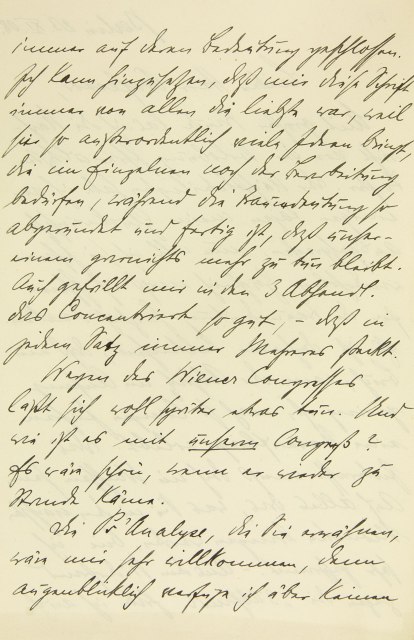 immer auf deren Bedeutung geschlossen.
Ich kann hinzusetzen, daß mir diese Schrift
immer von allen die liebste war, weil
sie so außerordentlich viele Ideen bringt,
die im Einzelnen noch der Bearbeitung
bedürfen, während die Traumdeutung so
abgerundet und fertig ist, daß unser-
einem garnichts mehr zu tun bleibt.
Auch gefällt mir in den 3 Abhandl.
das Concentriert so gut, – daß in
jedem Satz immer Mehreres steckt.
Wegen des Wiener Congresses
läßt sich wohl später etwas tun. Und
wie ist es mit unserm Congreß?
Es wäre schön, wenn er wieder zu
Stande käme.
Die Ps'Analyse, die Sie erwähnen,
wäre mir sehr willkommen, denn
augenblicklich verfüge ich über keinen